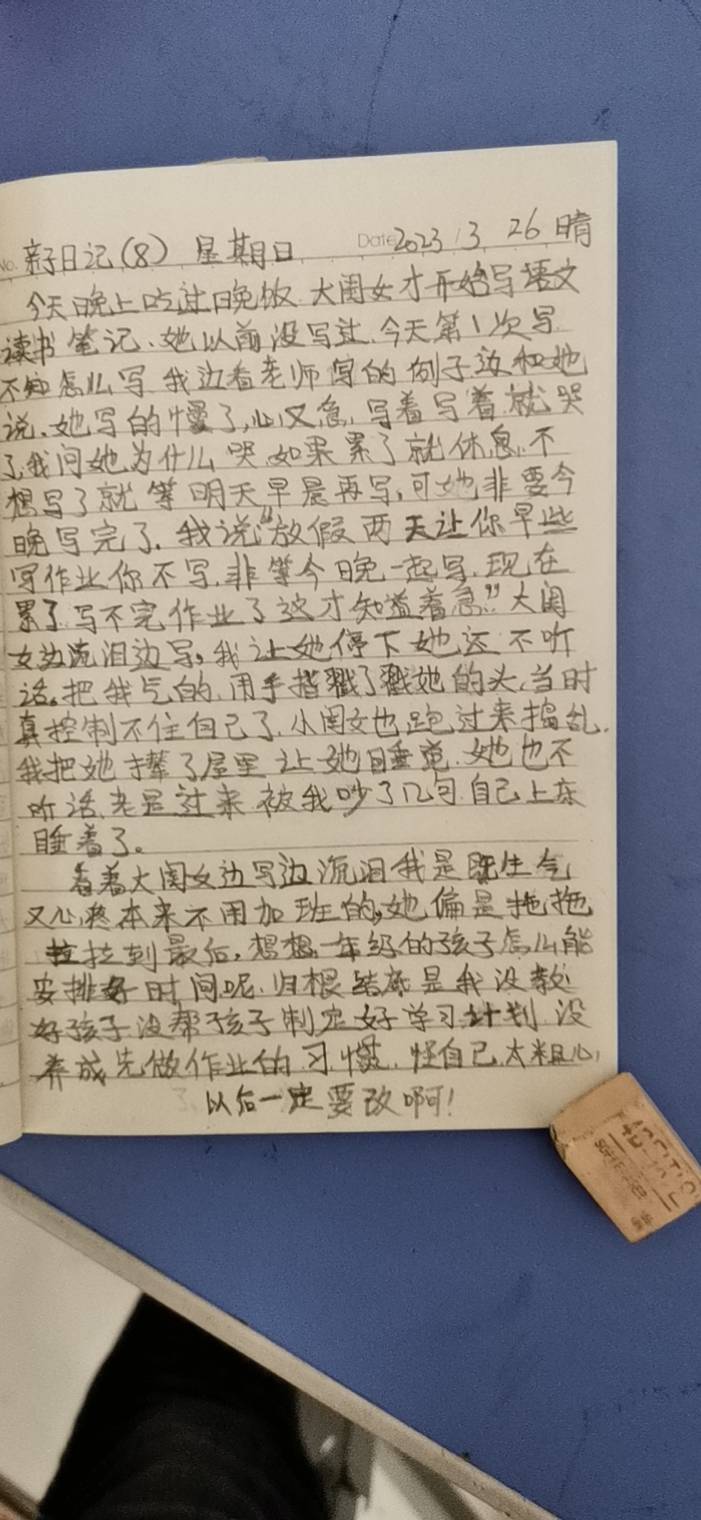 No. 亲子日记(8) 星期日 Date 2023 3 26 晴
今天晚上吃过晚饭 大闺女才开始写语文
读书笔记、她以前没写过.今天第1次写
不知怎么写 我边看老师写的例子边和她
说、她写的慢了,心又急,写着写着就哭
了,我问她为什么哭.如果累了就休息.不
想写了就等明天早晨再写,可她非要今
晚写完了.我说“放假两天让你早些
写作业你不写.非等今晚一起写.现在
累了写不完作业了这才知道着急.”大闺
女边流泪边写。我让她停下她还不听
话。把我气的,用手指戳了戳她的头、当时
真控制不住自己了.小闺女也跑过来捣乱.
我把她撵了屋里让她睡觉.她也不
听话.老是过来.被我吵了几句.自己上床
睡着了。
看着大闺女边写边流泪我是既生气
又心疼本来不用加班的,她偏是拖拖
拉拉到最后.想想一年级的孩子怎么能
安排好时间呢.归根结底是我没教
好孩子没帮孩子制定好学习计划.没
养成先做作业的习惯.怪自己太粗心,
以后一定要改啊!